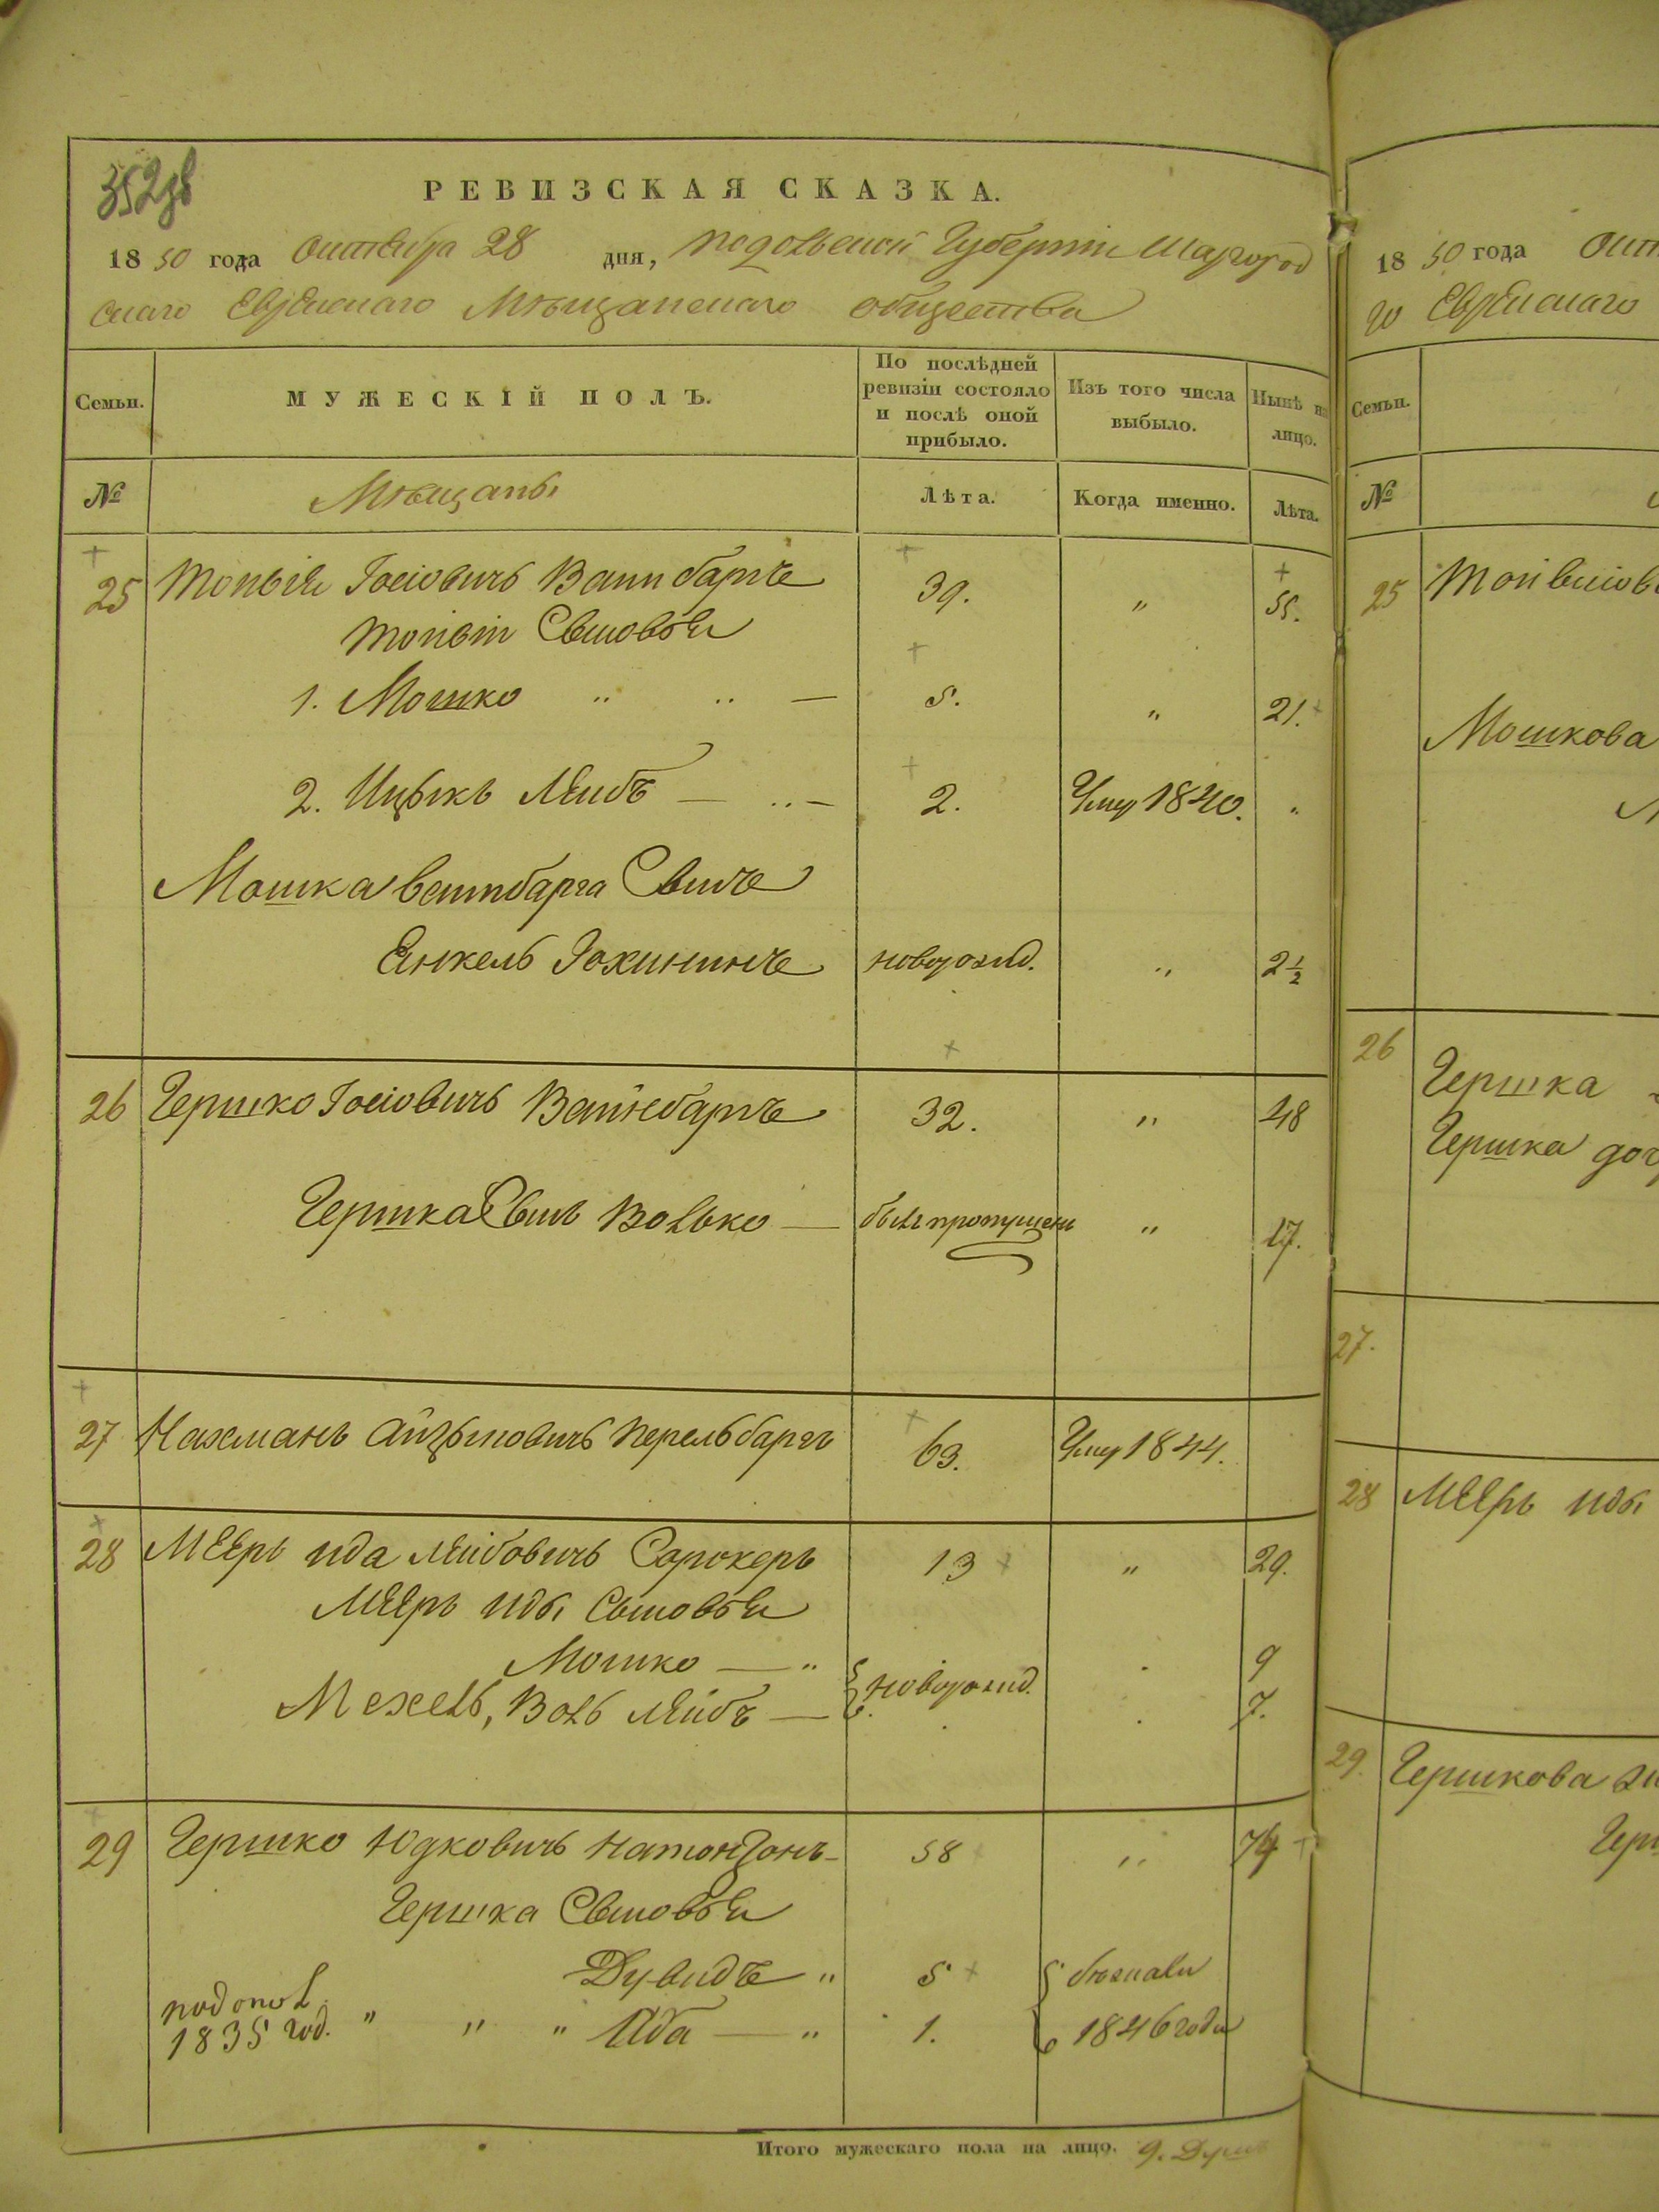 352 об
РЕВИЗСКАЯ СКАЗКА.
1850 года Октября 28 дня, Подольской Губерніи Шаргород
скаго Еврейскаго Мѣщанскаго общества
Семьи.
МУЖЕСКІЙ ПОЛЪ.
По послѣдней ревизіи состояло и послѣ оной прибыло.
Изъ того числа выбыло.
Нынѣ на лицо.
№ Мѣщаны Лѣта. Когда именно. Лѣта.
25 Іосіовичь Вайнбаргъ 39. " 55.
Сыновья
1. Мошко " " — 5. " 21.
2. Ицыкъ Лейбъ — " — 2. Умер 1840. "
Мошка Ваинбарга Сынъ
Янкель новорожд. " 2½
26 Гершко Іосіовичь Вайнбаргъ 32. " 48
Гершка Сынъ Волько — былъ пропущенъ " 17.
27 Нахманъ Айзыковичь Перельбаргъ 63. Умер 1844.
28 Мееръ Ида Лейбовичь Сорокеръ 13 " 29.
Мееръ Иды Сыновья
Мошко — " новорожд. 9
Мехель, Воль Лейбъ — 7.
29 Гершко Юдковичь Натонзонъ — 58 " 74
Гершка Сыновья
Дувидъ " 5 бежали
1835 год. " " " Аба — " 1. 1846 года
Итого мужескаго пола на лицо. 9. Душъ
1850 года Окт
го Еврейскаго
Семьи.
№
25
Мошкова
26 Гершка
Гершка доч
27.
28 Мееръ Иды
29. Гершкова
Гер